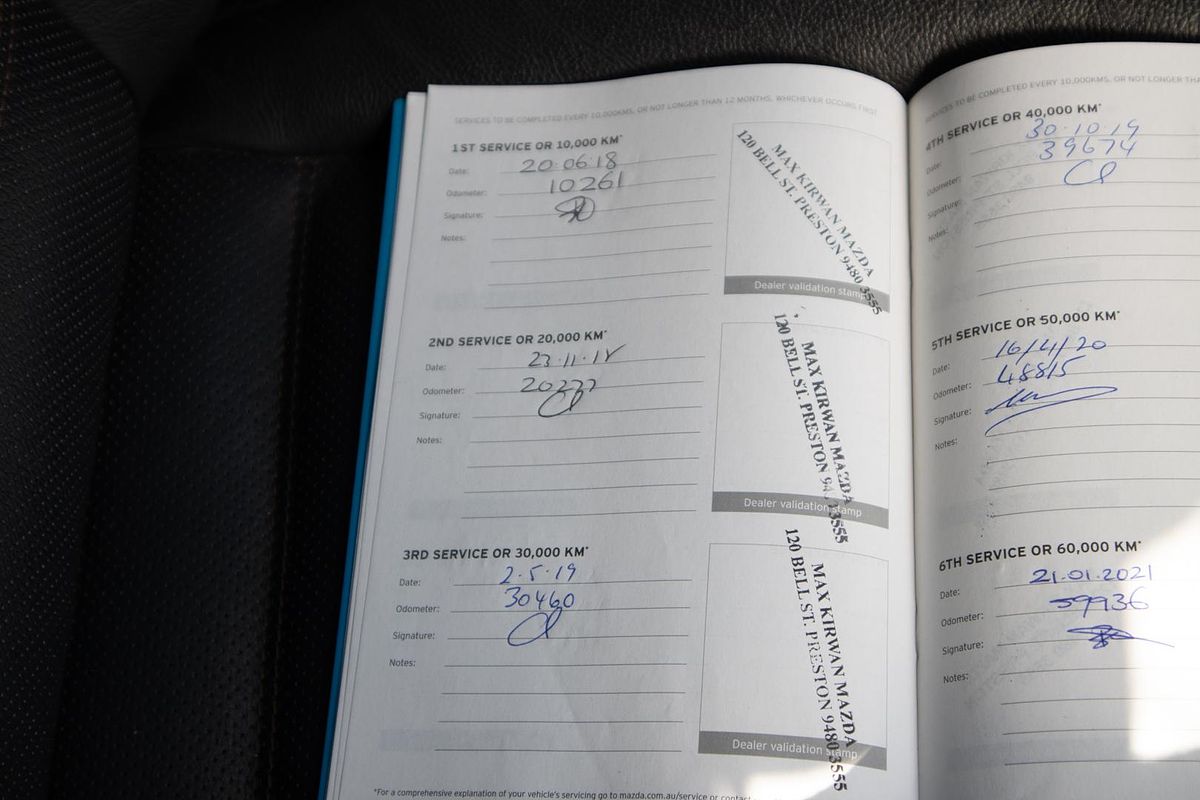 SERVICES TO BE COMPLETED EVERY 10,000KMS, OR NOT LONGER THAN 12 MONTHS, WHICHEVER OCCURS FIRST
1ST SERVICE OR 10,000 KM*
Date: 20.06.18
Odometer: 10261
Signature:
Notes:
MAX KIRWAN MAZDA
120 BELL ST. PRESTON 9480 3555
Dealer validation stamp
2ND SERVICE OR 20,000 KM*
Date: 23.11.18
Odometer: 20277
Signature:
Notes:
MAX KIRWAN MAZDA
120 BELL ST. PRESTON 94 3555
Dealer validation stamp
3RD SERVICE OR 30,000 KM*
Date: 2.5.19
Odometer: 30460
Signature:
Notes:
MAX KIRWAN MAZDA
120 BELL ST. PRESTON 9480 3555
Dealer validation stamp
*For a comprehensive explanation of your vehicle's servicing go to mazda.com.au/service or contact
SERVICES TO BE COMPLETED EVERY 10,000KMS, OR NOT LONGER THA
4TH SERVICE OR 40,000 KM*
Date: 30.10.19
Odometer: 39674
Signature:
Notes:
5TH SERVICE OR 50,000 KM*
Date: 16/4/20
Odometer: 48815
Signature:
Notes:
6TH SERVICE OR 60,000 KM*
Date: 21.01.2021
Odometer: 59936
Signature:
Notes: